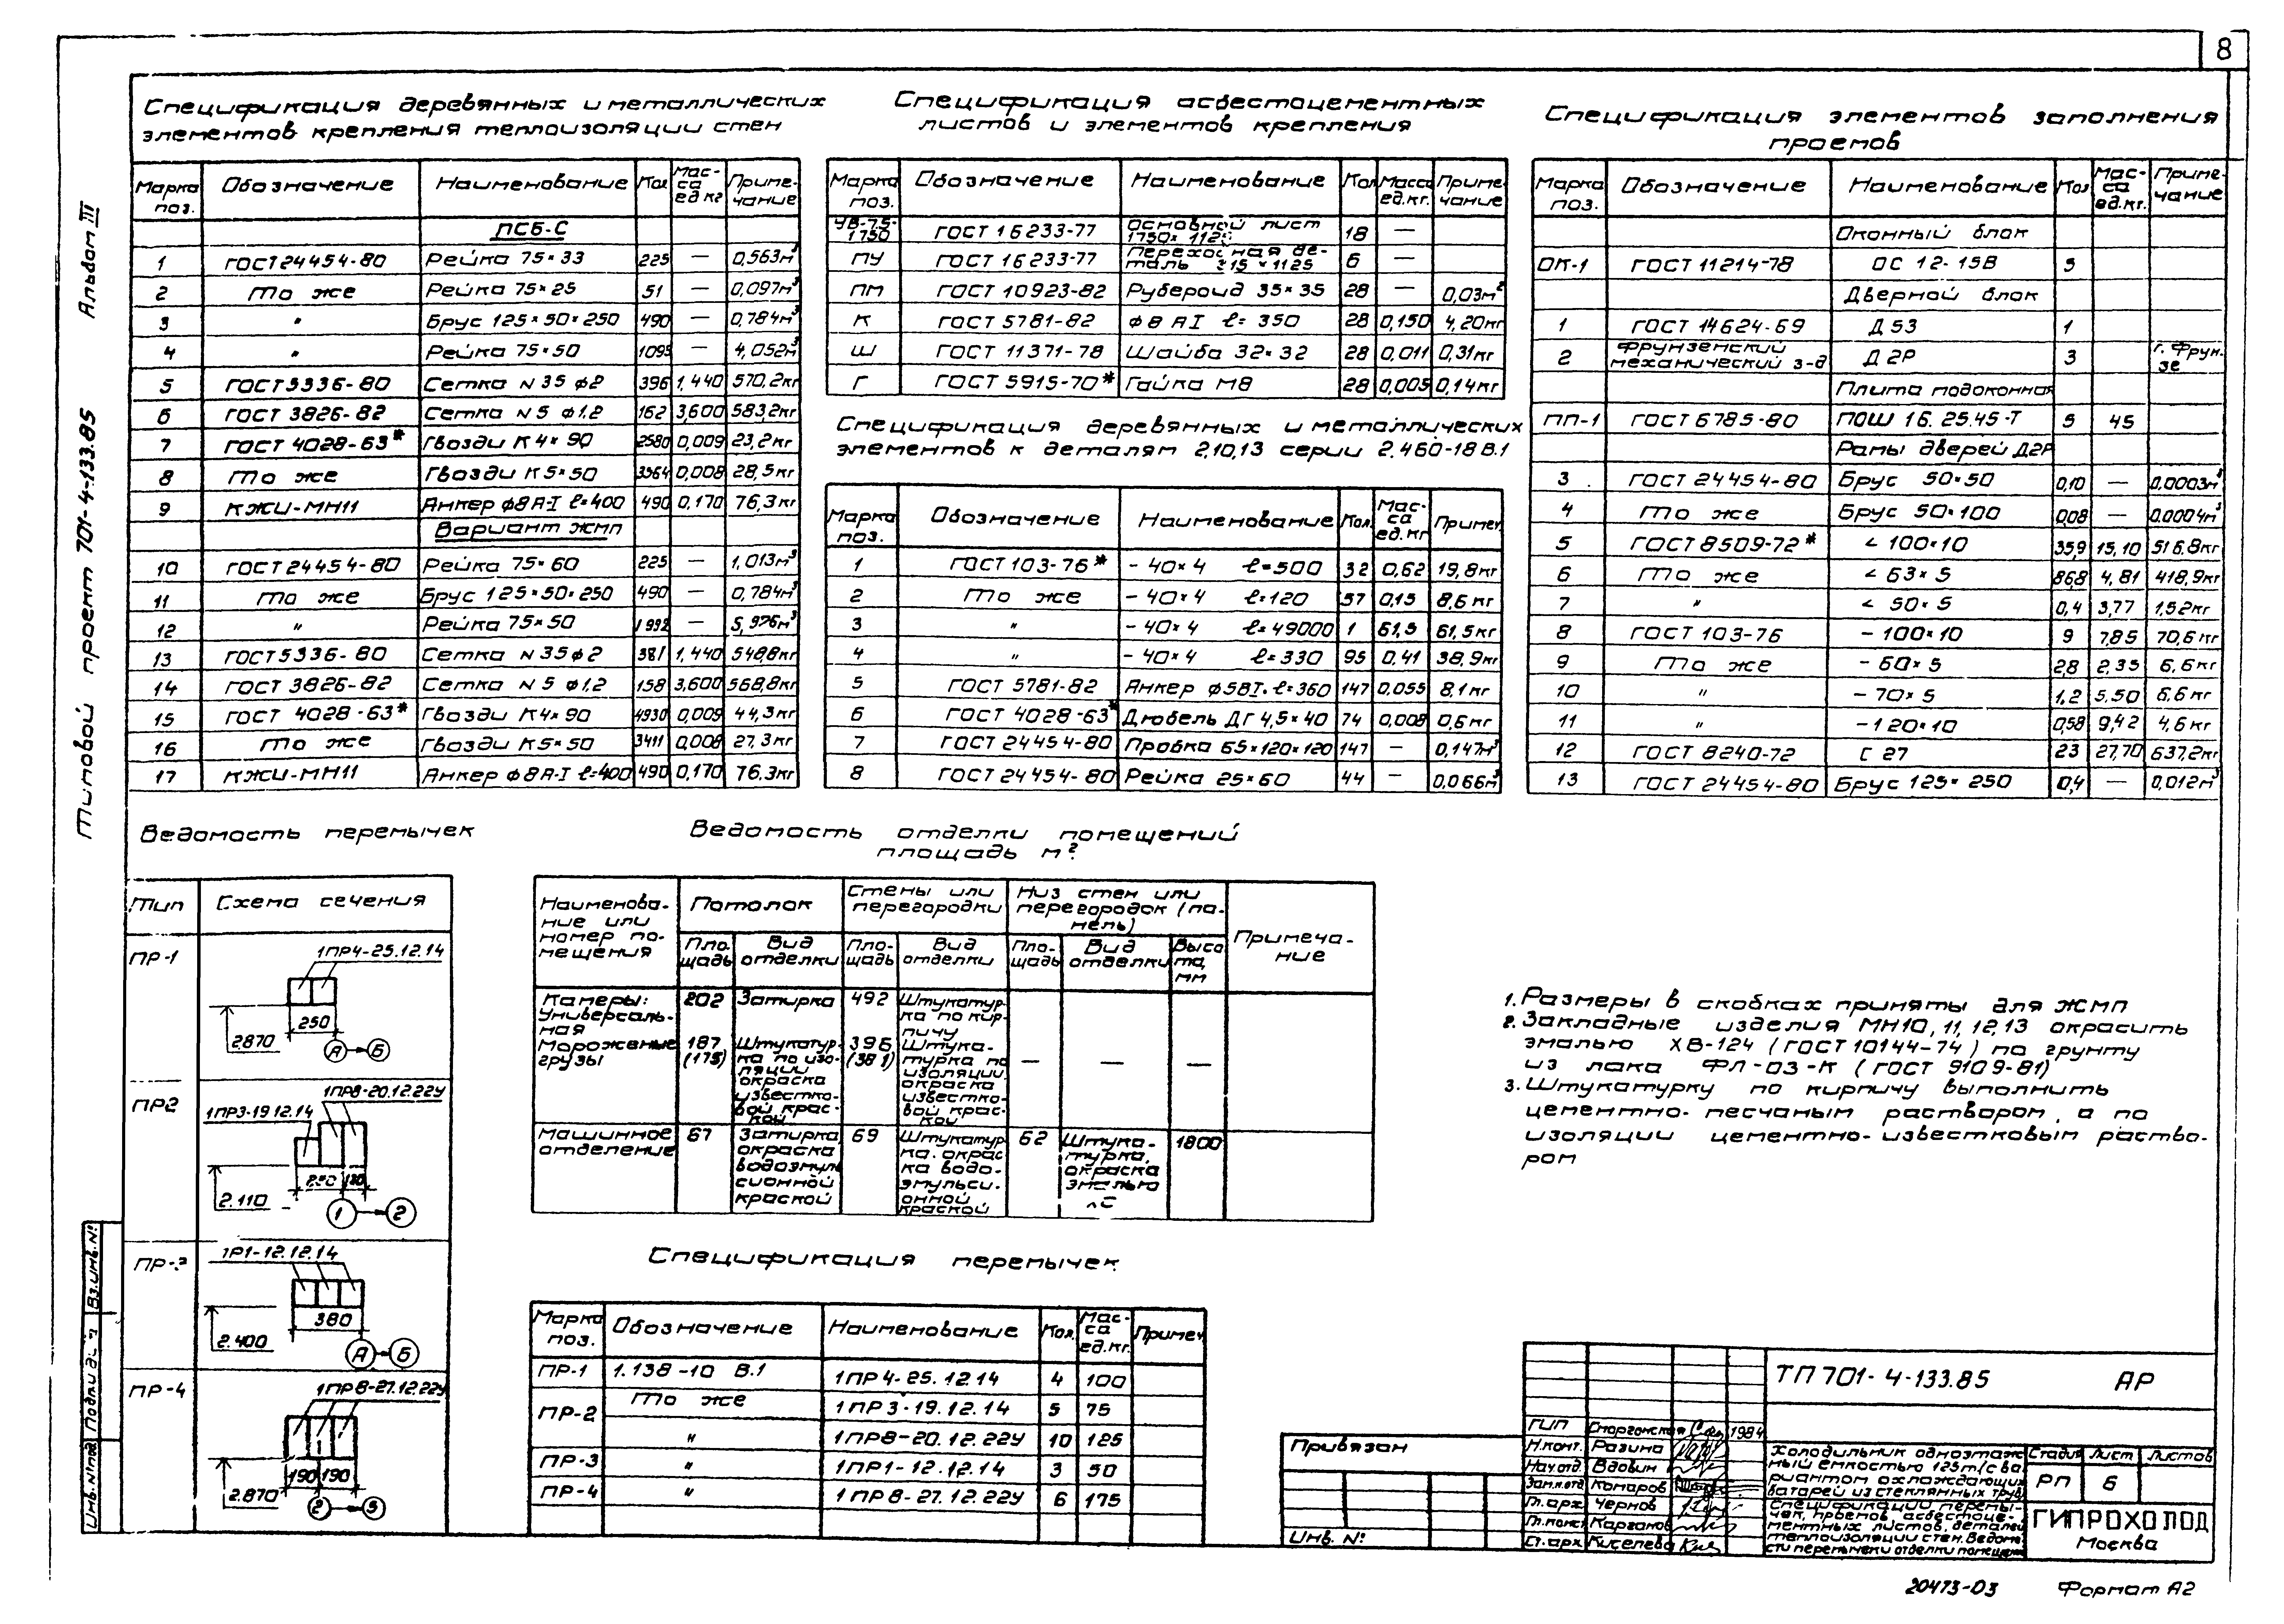 8
Альбом III
Типовой проект 701-4-133.85
Спецификация деревянных и металлических
элементов крепления теплоизоляции стен
Марка поз. Обозначение Наименование Кол Мас-са ед кг Приме-чание
ПСБ-С
1 ГОСТ 24454-80 Рейка 75×33 225 — 0,563м³
2 То же Рейка 75×25 51 — 0,097м³
3 " Брус 125×50×250 490 — 0,784м³
4 " Рейка 75×50 1095 — 4,052м³
5 ГОСТ 5336-80 Сетка N 35 ф2 396 1,440 570,2кг
6 ГОСТ 3826-82 Сетка N 5 ф1,2 162 3,600 583,2кг
7 ГОСТ 4028-63* Гвозди К 4×90 2580 0,009 23,2кг
8 То же Гвозди К 5×50 3564 0,008 28,5кг
9 КЖИ-МН11 Анкер ф8А-I ℓ=400 490 0,170 76,3кг
Вариант ЖМП
10 ГОСТ 24454-80 Рейка 75×60 225 — 1,013м³
11 То же Брус 125×50×250 490 — 0,784м³
12 " Рейка 75×50 —
13 ГОСТ 5336-80 Сетка N 35 ф2 381 1,440 548,8кг
14 ГОСТ 3826-82 Сетка N 5 ф1,2 158 3,600 568,8кг
15 ГОСТ 4028-63* Гвозди К4×90 4930 0,009 44,3кг
16 То же Гвозди К5×50 3411 0,008 27,3кг
17 КЖИ-МН11 Анкер ф8А-I ℓ=400 490 0,170 76,3кг
Спецификация асбестоцементных
листов и элементов крепления
Марка поз. Обозначение Наименование Кол Масса ед.кг. Приме-чание
УВ-7,5-1750 ГОСТ 16233-77 Основной лист 1750×1125 18 —
ПУ ГОСТ 16233-77 Переходная де-таль 6 —
ПМ ГОСТ 10923-82 Рубероид 35×35 28 — 0,03м²
К ГОСТ 5781-82 ф8 АI ℓ=350 28 0,150 4,20кг
Ш ГОСТ 11371-78 Шайба 32×32 28 0,011 0,31кг
Г ГОСТ 5915-70* Гайка М8 28 0,005 0,14кг
Спецификация деревянных и металлических
элементов к деталям 2,10,13 серии 2.460-18 В.1
Марка поз. Обозначение Наименование Кол. Мас-са ед.кг Примеч.
1 ГОСТ 103-76* - 40×4 ℓ=500 32 0,62 19,8кг
2 То же - 40×4 ℓ=120 57 0,15 8,6 кг
3 " - 40×4 ℓ=49000 1 61,5 61,5кг
4 " - 40×4 ℓ=330 95 0,41 38,9кг
5 ГОСТ 5781-82 Анкер ℓ=360 147 0,055 8,1 кг
6 ГОСТ 4028-63* Дюбель ДГ 4,5×40 74 0,008 0,6кг
7 ГОСТ 24454-80 Пробка 65×120×120 147 — 0,147м³
8 ГОСТ 24454-80 Рейка 25×60 44 — 0,066м³
Спецификация элементов заполнения
проемов
Марка поз. Обозначение Наименование Кол Мас-са ед.кг. Приме-чание
Оконный блок
ОК-1 ГОСТ 11214-78 ОС 12-15В 5
Дверной блок
1 ГОСТ 14624-69 Д 53 1
2 Фрунзенский механический з-д Д 2Р 3 г. Фрун-зе
Плита подоконная
ПП-1 ГОСТ 6785-80 ПОШ 16.25.45-Т 5 45
Рамы дверей Д2Р
3 ГОСТ 24454-80 Брус 50×50 0,10 — 0,0003м³
4 То же Брус 50×100 0,08 — 0,0004м³
5 ГОСТ 8509-72* ∠ 100×10 35,9 15,10 516,8кг
6 То же ∠ 63×5 86,8 4,81 418,9кг
7 " ∠ 50×5 0,4 3,77 1,52кг
8 ГОСТ 103-76 - 100×10 9 7,85 70,6 кг
9 То же - 60×5 2,8 2,35 6,6кг
10 " - 70×5 1,2 5,50 6,6 кг
11 " - 120×10 0,58 9,42 4,6 кг
12 ГОСТ 8240-72 С 27 23 27,70 637,2кг
13 ГОСТ 24454-80 Брус 125×250 0,4 — 0,012м³
Ведомость перемычек
Тип Схема сечения
ПР-1 1ПР4-25.12.14
250
2870
А Б
ПР2 1ПР3-19.12.14 1ПР8-20.12.22У
2.110
1 2
ПР-3 1ПР1-12.12.14
380
2.400
А Б
ПР-4 1ПР8-27.12.22У
190 190
2.870
2 3
Ведомость отделки помещений
площадь м²
Наименова-ние или номер по-мещения Потолок Стены или перегородки Низ стен или перегородок (па-нель) Примеча-ние
Пло-щадь Вид отделки Пло-щадь Вид отделки Пло-щадь Вид отделки Высо та, мм
Камеры: Универсаль-ная 202 Затирка 492 Штукатур-ка по кир-пичу
Мороженые грузы 187 (175) Штукатур-ка по изо-ляции окраска известко-вой крас-кой 396 (381) Штука-турка по изоляции, окраска известко-вой крас-кой — — —
Машинное отделение 67 Затирка окраска водоэмуль сионной краской 69 Штукатур ка. окрас ка водо-эмульси-онной краской 62 Штука-турка, окраска эмалью 1800
Спецификация перемычек
Марка поз. Обозначение Наименование Кол. Мас-са ед.кг. Примеч.
ПР-1 1.138-10 В.1 1ПР4-25.12.14 4 100
ПР-2 То же 1ПР3-19.12.14 5 75
" 1ПР8-20.12.22У 10 125
ПР-3 " 1ПР1-12.12.14 3 50
ПР-4 " 1ПР8-27.12.22У 6 175
1. Размеры в скобках приняты для ЖМП
2. Закладные изделия МН10, 11, 12, 13 окрасить
эмалью ХВ-124 (ГОСТ 10144-74) по грунту
из лака ФЛ-03-К (ГОСТ 9109-81)
3. Штукатурку по кирпичу выполнить
цементно-песчаным раствором, а по
изоляции цементно-известковым раство-
ром
Привязан
Инв. №
ТП 701-4-133.85 АР
ГИП 1984
Н.конт. Разина
Нач.отд. Вдовин
Зам.н.отд Комаров
Гл.арх. Чернов
Гл.конст Карганов
Ст.арх. Киселева
Холодильник одноэтаж
ный емкостью 125т/с ва
риантом охлаждающих
батарей из стеклянных труб
Стадия Лист Листов
РП 6
Спецификации перемы-
чек, проемов, асбестоце-
ментных листов, деталей
теплоизоляции стен. Ведомо-
сти перемычек и отделки помещен
ГИПРОХОЛОД
Москва
Инв.№подл Подп и дата Вз.инв.№
20473-03 Формат А2